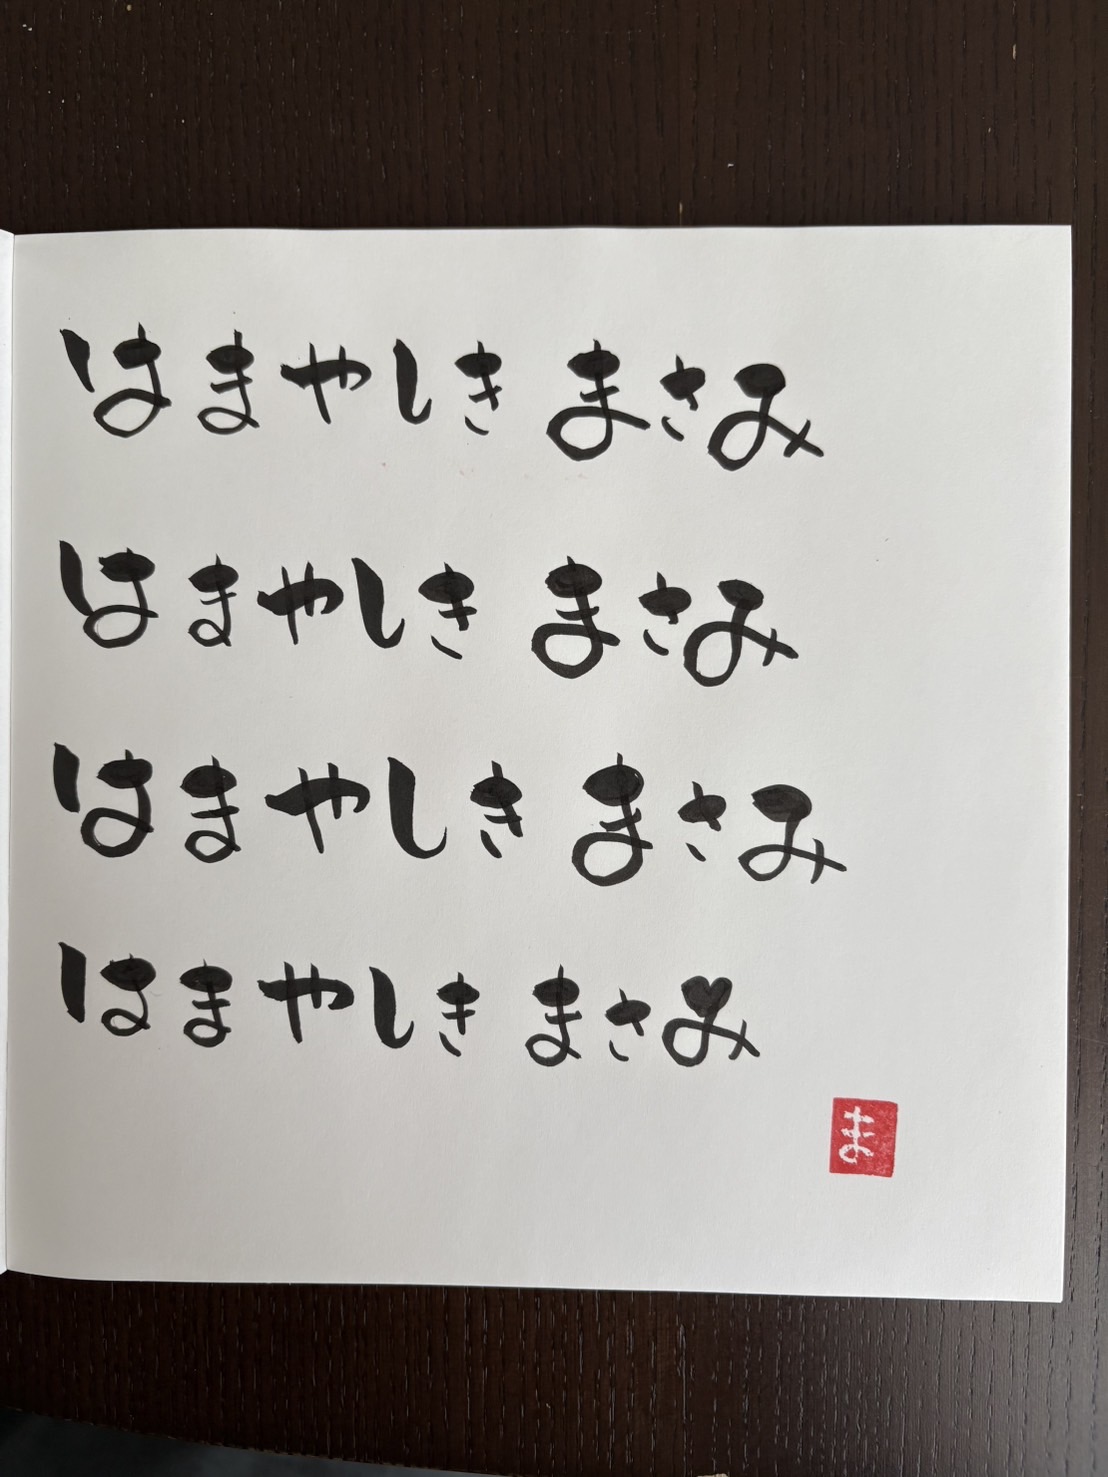 はまやしき まさみ
はまやしき まさみ
はまやしき まさみ
はまやしき まさみ
ま